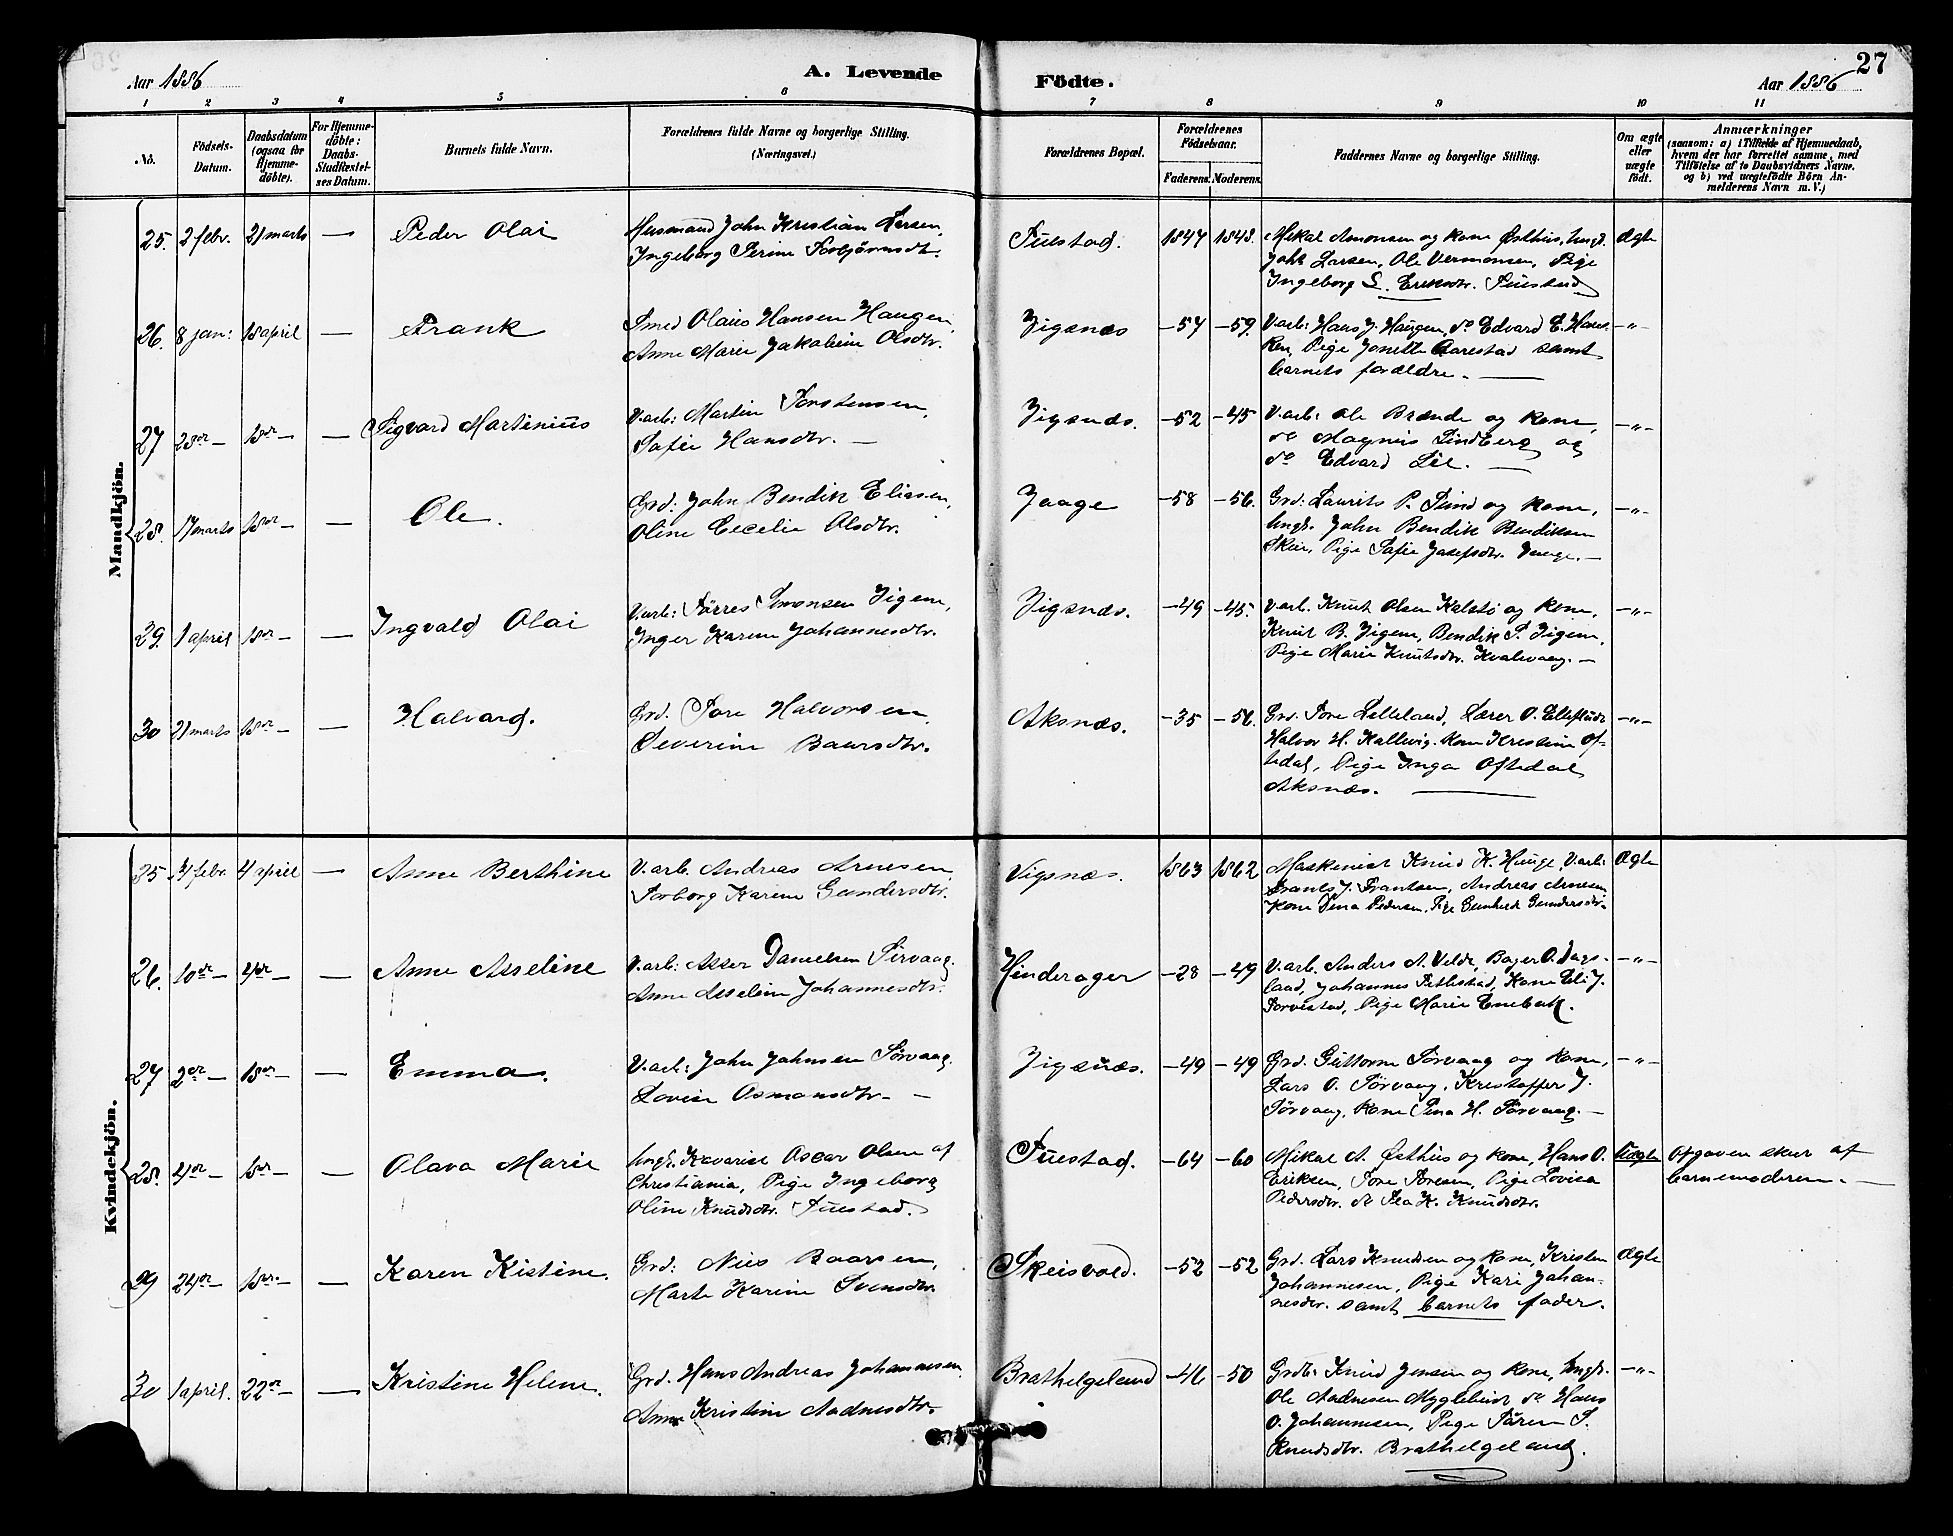 27
Aar 1886
A. Levende
Födte.
Aar 1886
1 2 3 4 5 6 7 8 9 10 11
No.
Födsels-
Datum.
Daabsdatum
(ogsaa for
Hjemme-
döbte).
For Hjemme-
döbte:
Daabs-
Stadfæstel-
ses Datum.
Barnets fulde Navn.
Forældrenes fulde Navne og borgerlige Stilling.
(Næringsvei.)
Forældrenes Bopæl.
Forældrenes
Födselsaar.
Faderens. Moderens.
Faddernes Navne og borgerlige Stilling.
Om ægte
eller
uægte
födt.
Anmærkninger
(saasom: a) i Tilfælde af Hjemmedaab,
hvem der har forrettet samme, med
Tilföielse af to Daabsvidners Navne.
og b) ved uægtefödte Börn An-
melderens Navn m. V.)
Mandkjön.
25. 2 febr. 21 marts — Peder Olai
Husmand John Kristian Larsen,
Ingeborg Serine Torbjörnsdtr.
1847 1848.
Mikal Amonsen og kone Østhus, Ungk.
John Larsen, Ole Vermonsen, Pige
Ingeborg L. Eriksdtr.
Ægte
26. 8 jan: 18 april — Frank
Smed Olaus Hansen Haugen,
Anne Marie Jakobine Olsdtr.
Vigsnæs -57 -59.
V.arb: Hans J. Haugen, do Edvard E. Hans-
ken, Pige Jonette Aarestad samt
barnets forældre. —
-"-
27 28de — 18de — — Sigvard Martinius
V.arb: Martin Torstensen,
Sofie Hansdtr. —
Vigsnæs. -52 -45
V.arb: Ole Brænde og kone,
do Magnus Lindberg og
do Edvard Lie. —
-"-
28. 17 marts 18de — — Ole.
Grd: John Bendik Eliasen,
Oline Cecelie Olsdtr.
Vaage -58 -56.
Grd: Laurits P. Sund og kone,
Ungk. John Bendik Bendiksen
Skeie, Pige Sofie Josefsdtr. Vaage. —
-"-
29. 1 april 18de — — Ingvald Olai
V.arb: Törres Simonsen Vigene,
Inger Karine Johannesdtr.
Vigsnæs. -49 -45.
V.arb. Knut Olsen Kalstö og kone,
Knut B. Vigene, Bendik S. Vigene,
Pige Marie Knutsdtr. Kvalevaag. —
-"-
30 21 marts 18de — — Halvard.
Grd. Tore Halvorsen,
Severine Baarsdtr.
Aksnæs. -35 -56.
Grd. Tore Lilleland, Lærer O.
Halvor H. Kallevig. Kone Kristine Of-
tedal, Pige Inga Oftedal
Aksnæs. —
-"-
Kvindekjön.
25 3 febr 4 april — Anne Berthine
V.arb. Andreas Arnesen
Torborg Karine Gundersdtr.
Vigsnæs. 1863 1862
Maskinist Knud K. Hauge, V.arb:
Frants J. Frantsen, Andreas Arnesen
Kone Dina Pedersen, Pige Gunhild Gundersdtr.
Ægte
26. 10de — 4de — — Anne Asseline
V.arb: Asser Danielsen Sörvaag.
Anne Asseline Johannesdtr.
Hinderager -28 -49
V.arb. Anders A. Velde, Bager O. Dags-
land, Johannes Pettestad, Kone Eli J.
Torvestad, Pige Marie
-"-
27 2de — 18de — — Emma.
V.arb: John Johnsen Sörvaag.
Lovise Osmondsdtr. —
Vigsnæs. -49 -49
Grd. Guttorm Sörvaag og kone,
Lars O. Sörvaag, Kristoffer J.
Sörvaag, kone Sina H. Sörvaag. —
-"-
28. 4de — 18de — — Olava Marie
Ungk. Oscar Olsen af
Christiania, Pige Ingeborg
Oline Knudsdtr.
-64 -60
Mikal A. Østhus og kone, Hans O.
Eriksen, Tore Toresen, Pige Lovisa
Pedersdtr. do Sea K. Knudsdtr.
Uægte
Opgaven sker af
barnemoderen. —
29 24de — 18de — — Karen Kistine.
Grd: Nils Baarsen,
Marte Karine Svensdtr.
Skeisvold. -52 -52
Grd. Lars Knudsen og kone, Kristen
Johannesen, Pige Kari Johan-
nesdtr. samt barnets fader.
Ægte
30 1 april. 22de — — Kristine Helene.
Grd. Hans Andreas Johannesen
Anne Kristine Aadnesdtr.
Brathelgeland -46 -50
Grdb: Knud Jensen og kone, Ungk.
Ole Aadnesen Myglebust do Hans
O. Johannesen, Pige Sören S.
Knudsdtr. Brathelgeland.
-"-